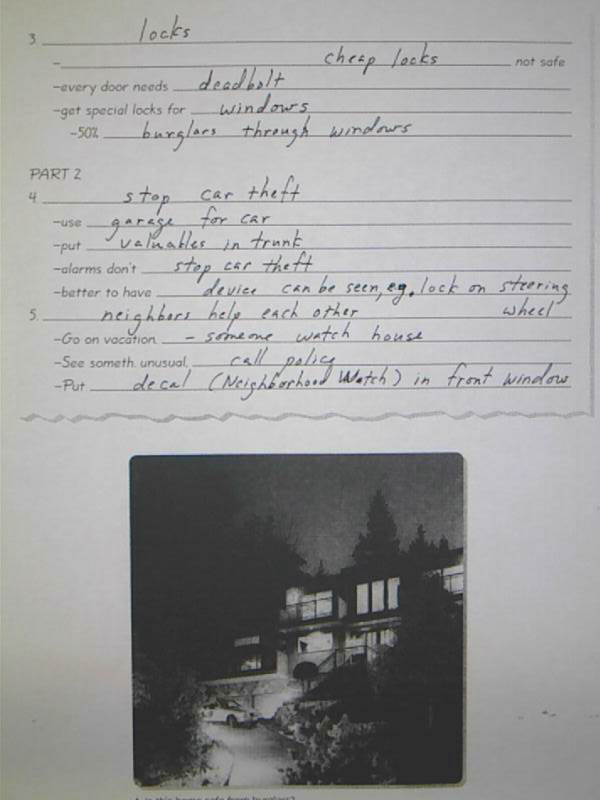 3. locks
- cheap locks not safe
-every door needs deadbolt
-get special locks for windows
-50% burglars through windows
PART 2
4. stop car theft
-use garage for car
-put valuables in trunk
-alarms don't stop car theft
-better to have device can be seen, eg. lock on steering wheel
5. neighbors help each other
-Go on vacation - someone watch house
-See someth. unusual, call police
-Put decal (Neighborhood Watch) in front window